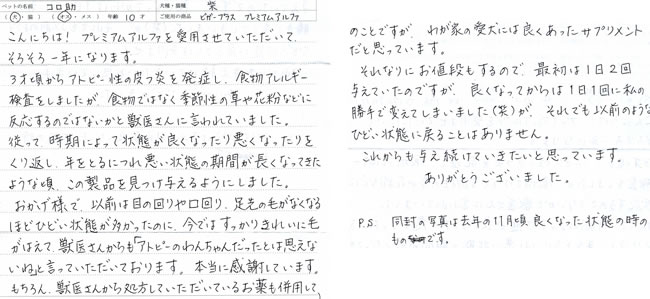 ペットの名前 コロ助 犬種・猫種 柴
犬・猫 オス・メス 年齢 10才 ご使用の商品 ビガープラス プレミアムアルファ
こんにちは! プレミアムアルファを愛用させていただいて、
そろそろ一年になります。
3才頃からアトピー性の皮フ炎を発症し、食物アレルギー
検査をしましたが、食物ではなく季節性の草や花粉などに
反応するのではないかと獣医さんに言われていました。
従って、時期によって状態が良くなったり悪くなったりを
くり返し、年をとるにつれ悪い状態の期間が長くなってきた
ような頃、この製品を見つけ与えるようにしました。
おかげ様で、以前は目の回りや口回り、足先の毛がなくなる
ほどひどい状態が多かったのに、今ではすっかりきれいに毛
がはえて、獣医さんからも「アトピーのわんちゃんだったとは思えな
いね」と言っていただいております。本当に感謝しています。
もちろん、獣医さんから処方していただいているお薬も併用して、
のことですが、わが家の愛犬には良くあったサプリメント
だと思っています。
それなりにお値段もするので、最初は1日2回
与えていたのですが、良くなってからは1日1回に私の
勝手で変えてしまいました(笑)が、それでも以前のような
ひどい状態に戻ることはありません。
これからも与え続けていきたいと思っています。
ありがとうございました。
P.S. 同封の写真は去年の11月頃 良くなった状態の時の
ものです。